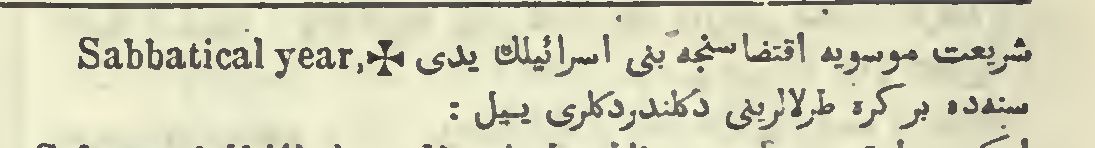 Sabbatical year,✠ شریعت موسویه اقتضاسنجه بنی اسرائیلك یدی
سنه‌ده بر کره طرلالرینی دکلندردکلری ییل :